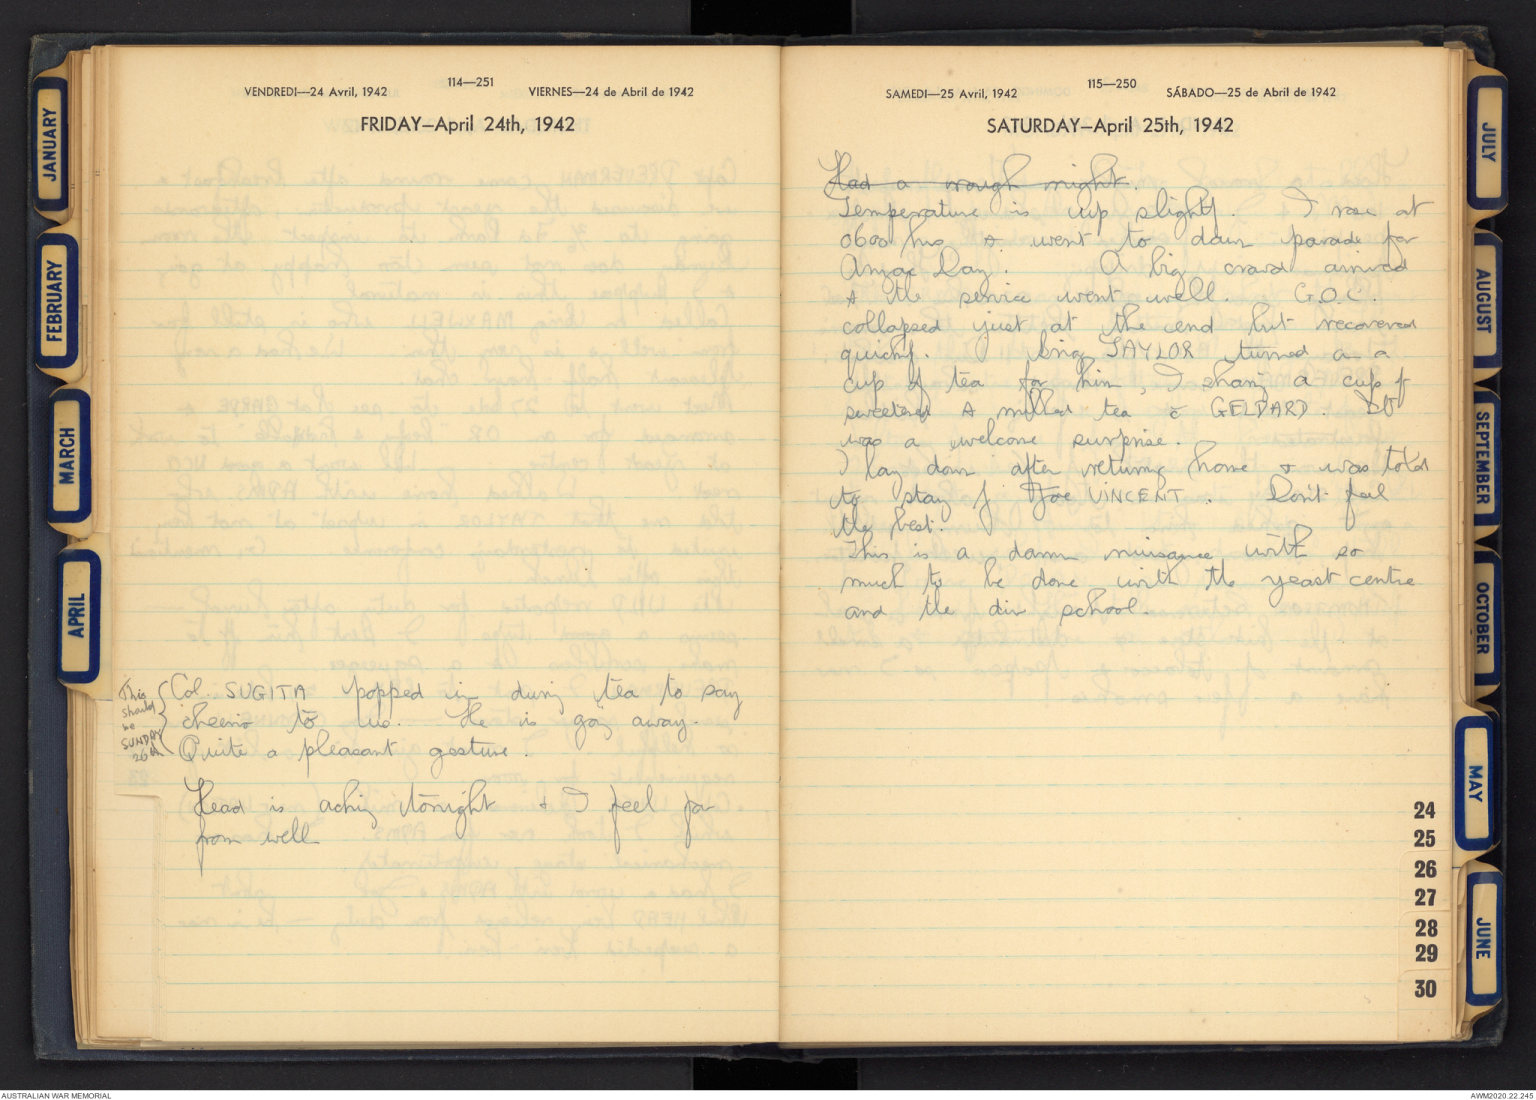 JANUARY
FEBRUARY
MARCH
APRIL
VENDREDI—24 Avril, 1942
114—251
VIERNES—24 de Abril de 1942
FRIDAY—April 24th, 1942
This
should
be
SUNDAY
26th
Col. SUGITA popped in during tea to say
cheerio to us. He is going away.
Quite a pleasant gesture.
Head is aching tonight & I feel far
from well
SAMEDI—25 Avril, 1942
115—250
SÁBADO—25 de Abril de 1942
SATURDAY—April 25th, 1942
Had a rough night.
Temperature is up slightly. I rose at
0600 hrs & went to dawn parade for
Anzac Day. A big crowd arrived
& the service went well. G.O.C.
collapsed just at the end but recovered
quickly. Brig TAYLOR turned on a
cup of tea for him, I sharing a cup of
sweetened & milked tea c̄ GELDARD. It
was a welcome surprise.
I lay down after returning home & was told
to stay by Joe VINCENT. Don't feel
the best.
This is a damn nuisance with so
much to be done with the yeast centre
and the div school.
24
25
26
27
28
29
30
JULY
AUGUST
SEPTEMBER
OCTOBER
MAY
JUNE
AUSTRALIAN WAR MEMORIAL
AWM2020.22.245